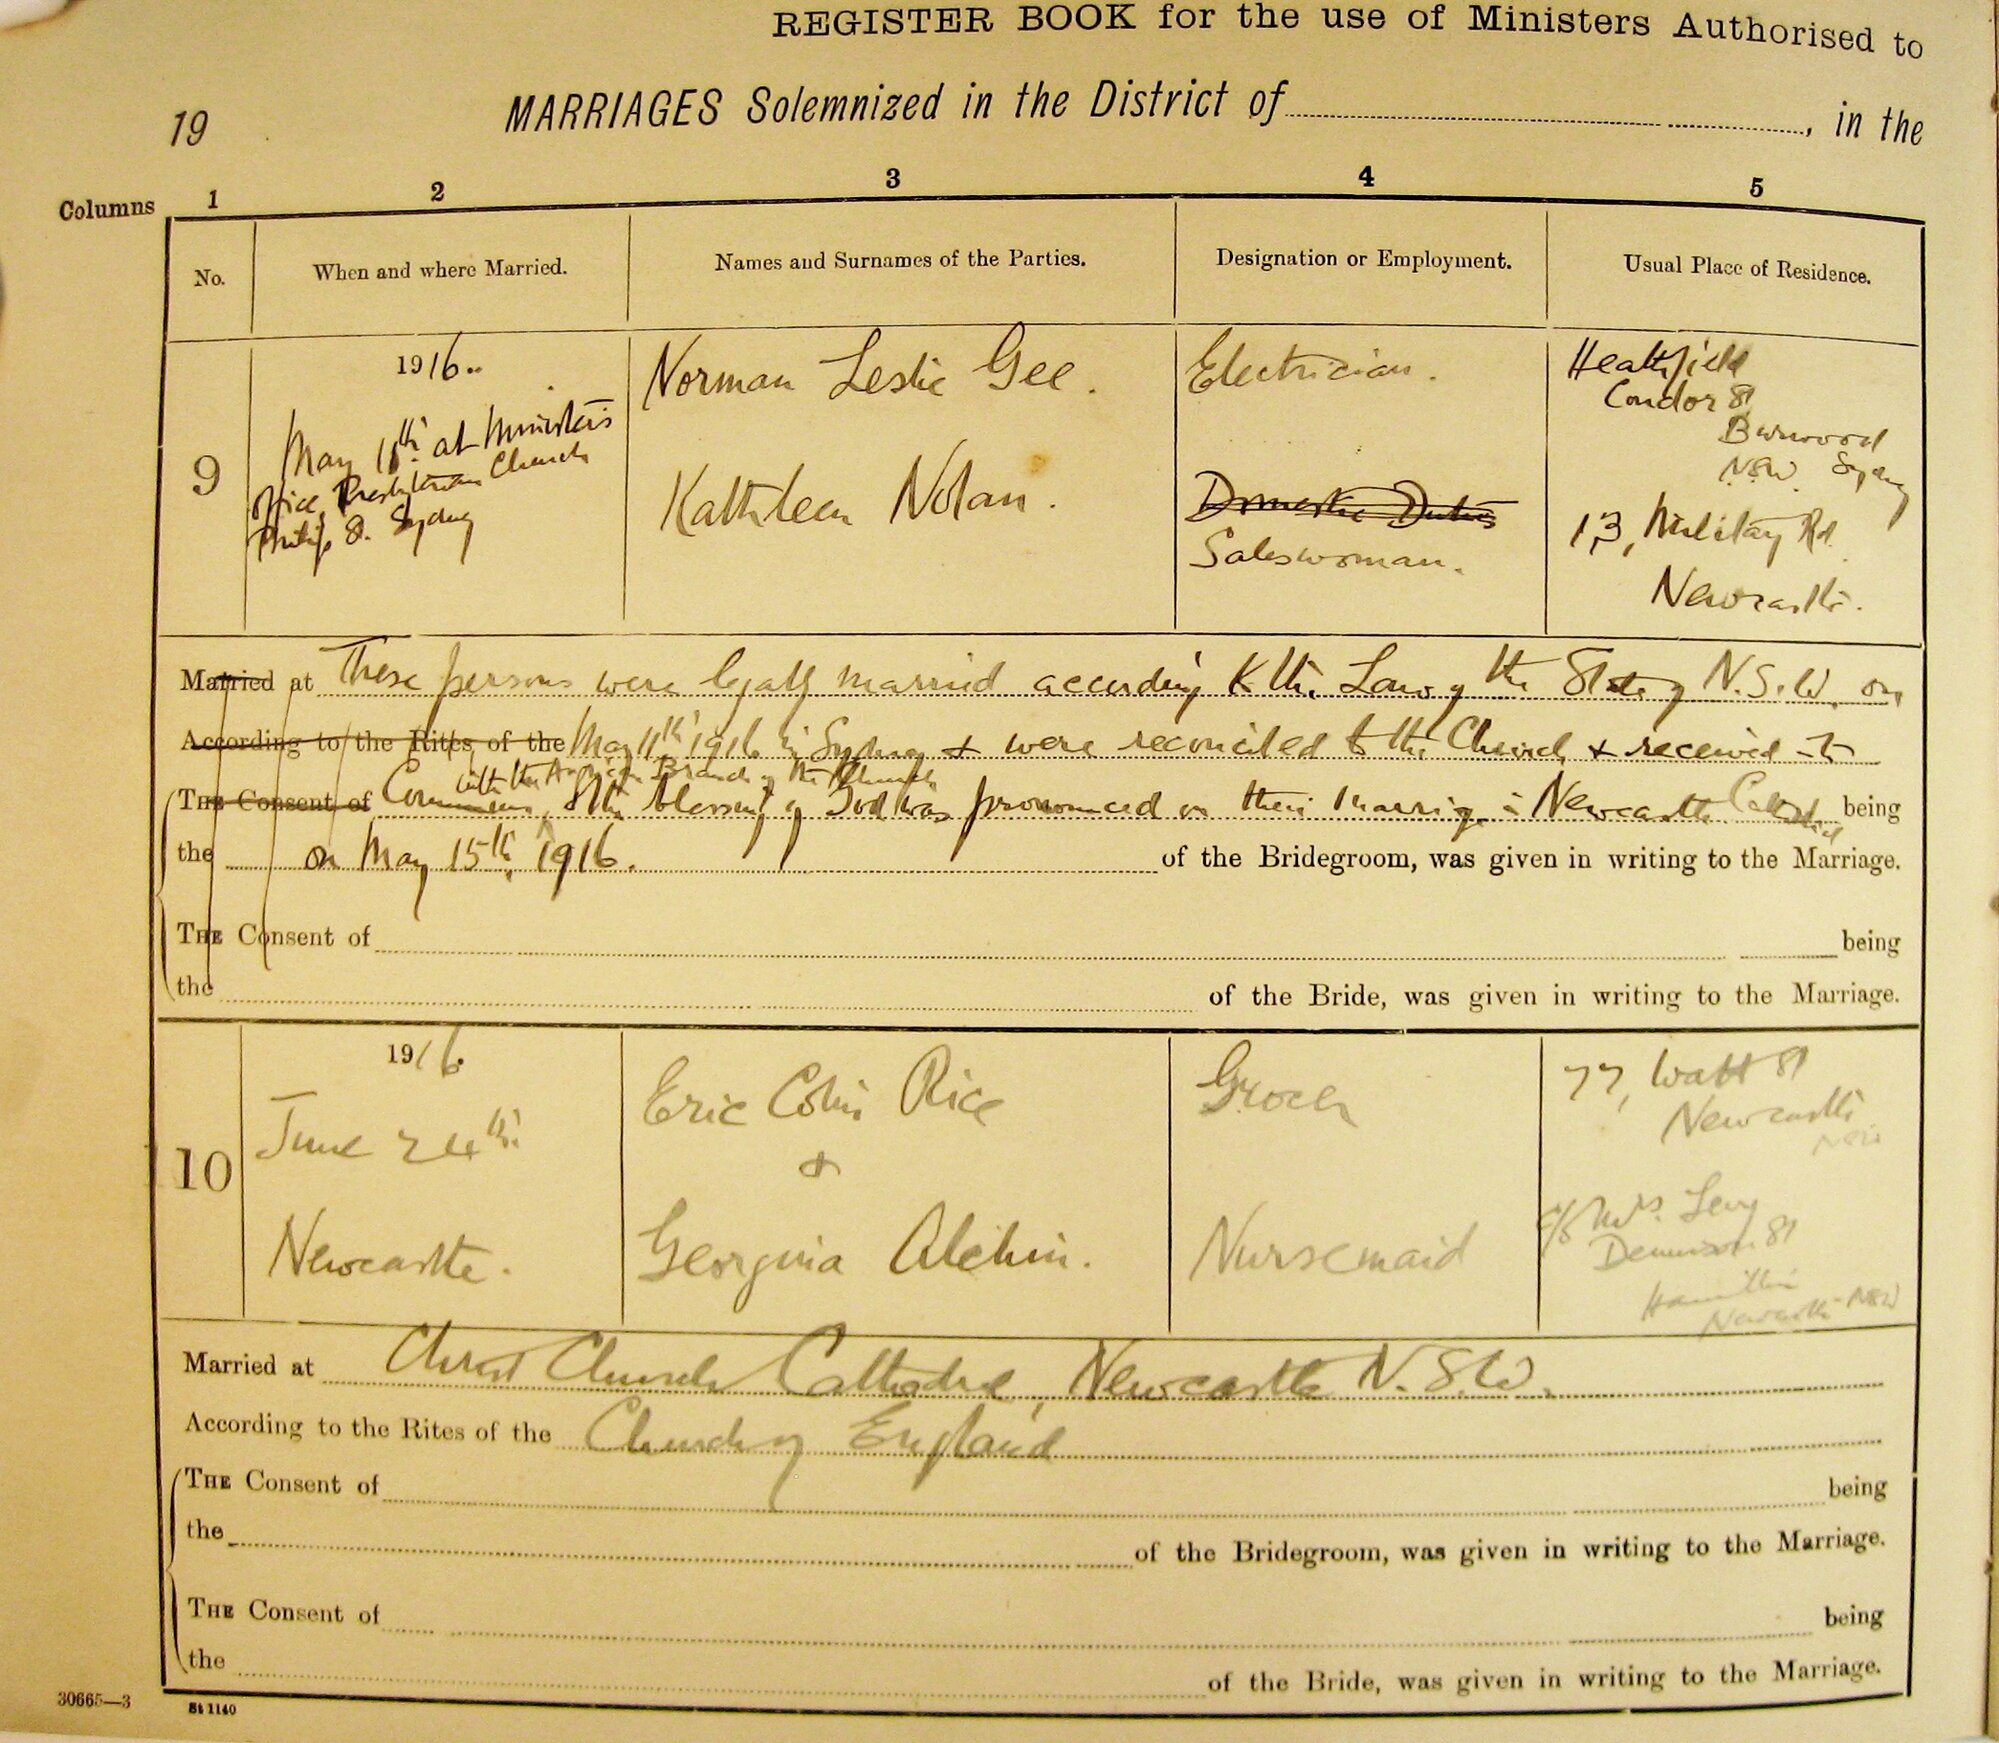 REGISTER BOOK for the use of Ministers Authorised to
19 MARRIAGES Solemnized in the District of , in the
Columns 1 2 3 4 5
No. When and where Married. Names and Surnames of the Parties. Designation or Employment. Usual Place of Residence.
9
1916.
May 11th at Ministers
Office, Presbyterian Church
Philip St. Sydney
Norman Leslie Gee.
Kathleen Nolan.
Electrician.
Domestic Duties
Saleswoman.
Heathfield
Condor St
Burwood
NSW Sydney
13, Military Rd.
Newcastle.
Married at These persons were legally married according to the Law of the State of N.S.W. on
According to the Rites of the May 11th 1916 in Sydney & were reconciled to the Church & received to
with the Anglican Branch of the Church
THE Consent of Communion, & the blessing of God was pronounced on their marriage in Newcastle Cathedral being
the on May 15th, 1916. of the Bridegroom, was given in writing to the Marriage.
THE Consent of being
the of the Bride, was given in writing to the Marriage.
10
1916.
June 24th.
Newcastle.
Eric Colin Rice
&
Georgina Alchin.
Grocer
Nursemaid
77, Watt St
Newcastle
NSW
c/o Mrs. Levy
Dennison St
Hamilton
Newcastle NSW
Married at Christ Church Cathedral, Newcastle N.S.W.
According to the Rites of the Church of England
THE Consent of being
the of the Bridegroom, was given in writing to the Marriage.
THE Consent of being
the of the Bride, was given in writing to the Marriage.
30665—3 St 1140